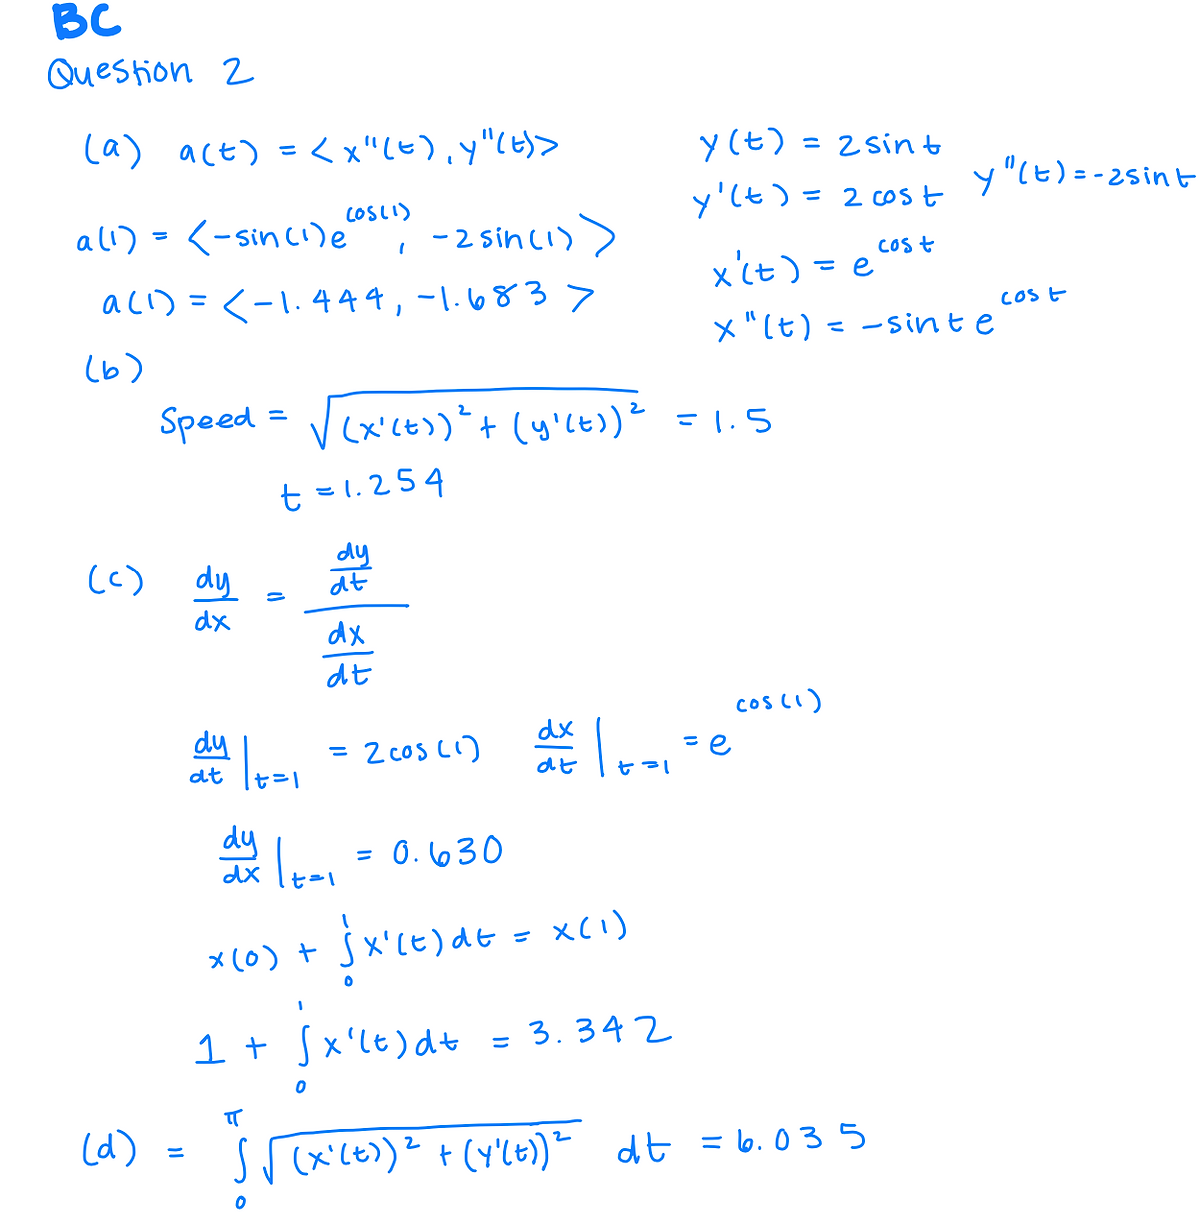 BC
Question 2
(a) a(t) = < x''(t), y''(t) >
y(t) = 2 sin t
y'(t) = 2 cos t y''(t) = -2 sin t
a(1) = < -sin(1)e^cos(1), -2 sin(1) >
x'(t) = e^cos t
a(1) = < -1.444, -1.683 >
x''(t) = -sin t e^cos t
(b)
Speed = √((x'(t))² + (y'(t))²) = 1.5
t = 1.254
(c) dy/dx = (dy/dt)/(dx/dt)
dy/dt |t=1 = 2 cos(1) dx/dt |t=1 = e^cos(1)
dy/dx |t=1 = 0.630
x(0) + ∫₀¹ x'(t) dt = x(1)
1 + ∫₀¹ x'(t) dt = 3.342
(d) = ∫₀^π √((x'(t))² + (y'(t))²) dt = 6.035